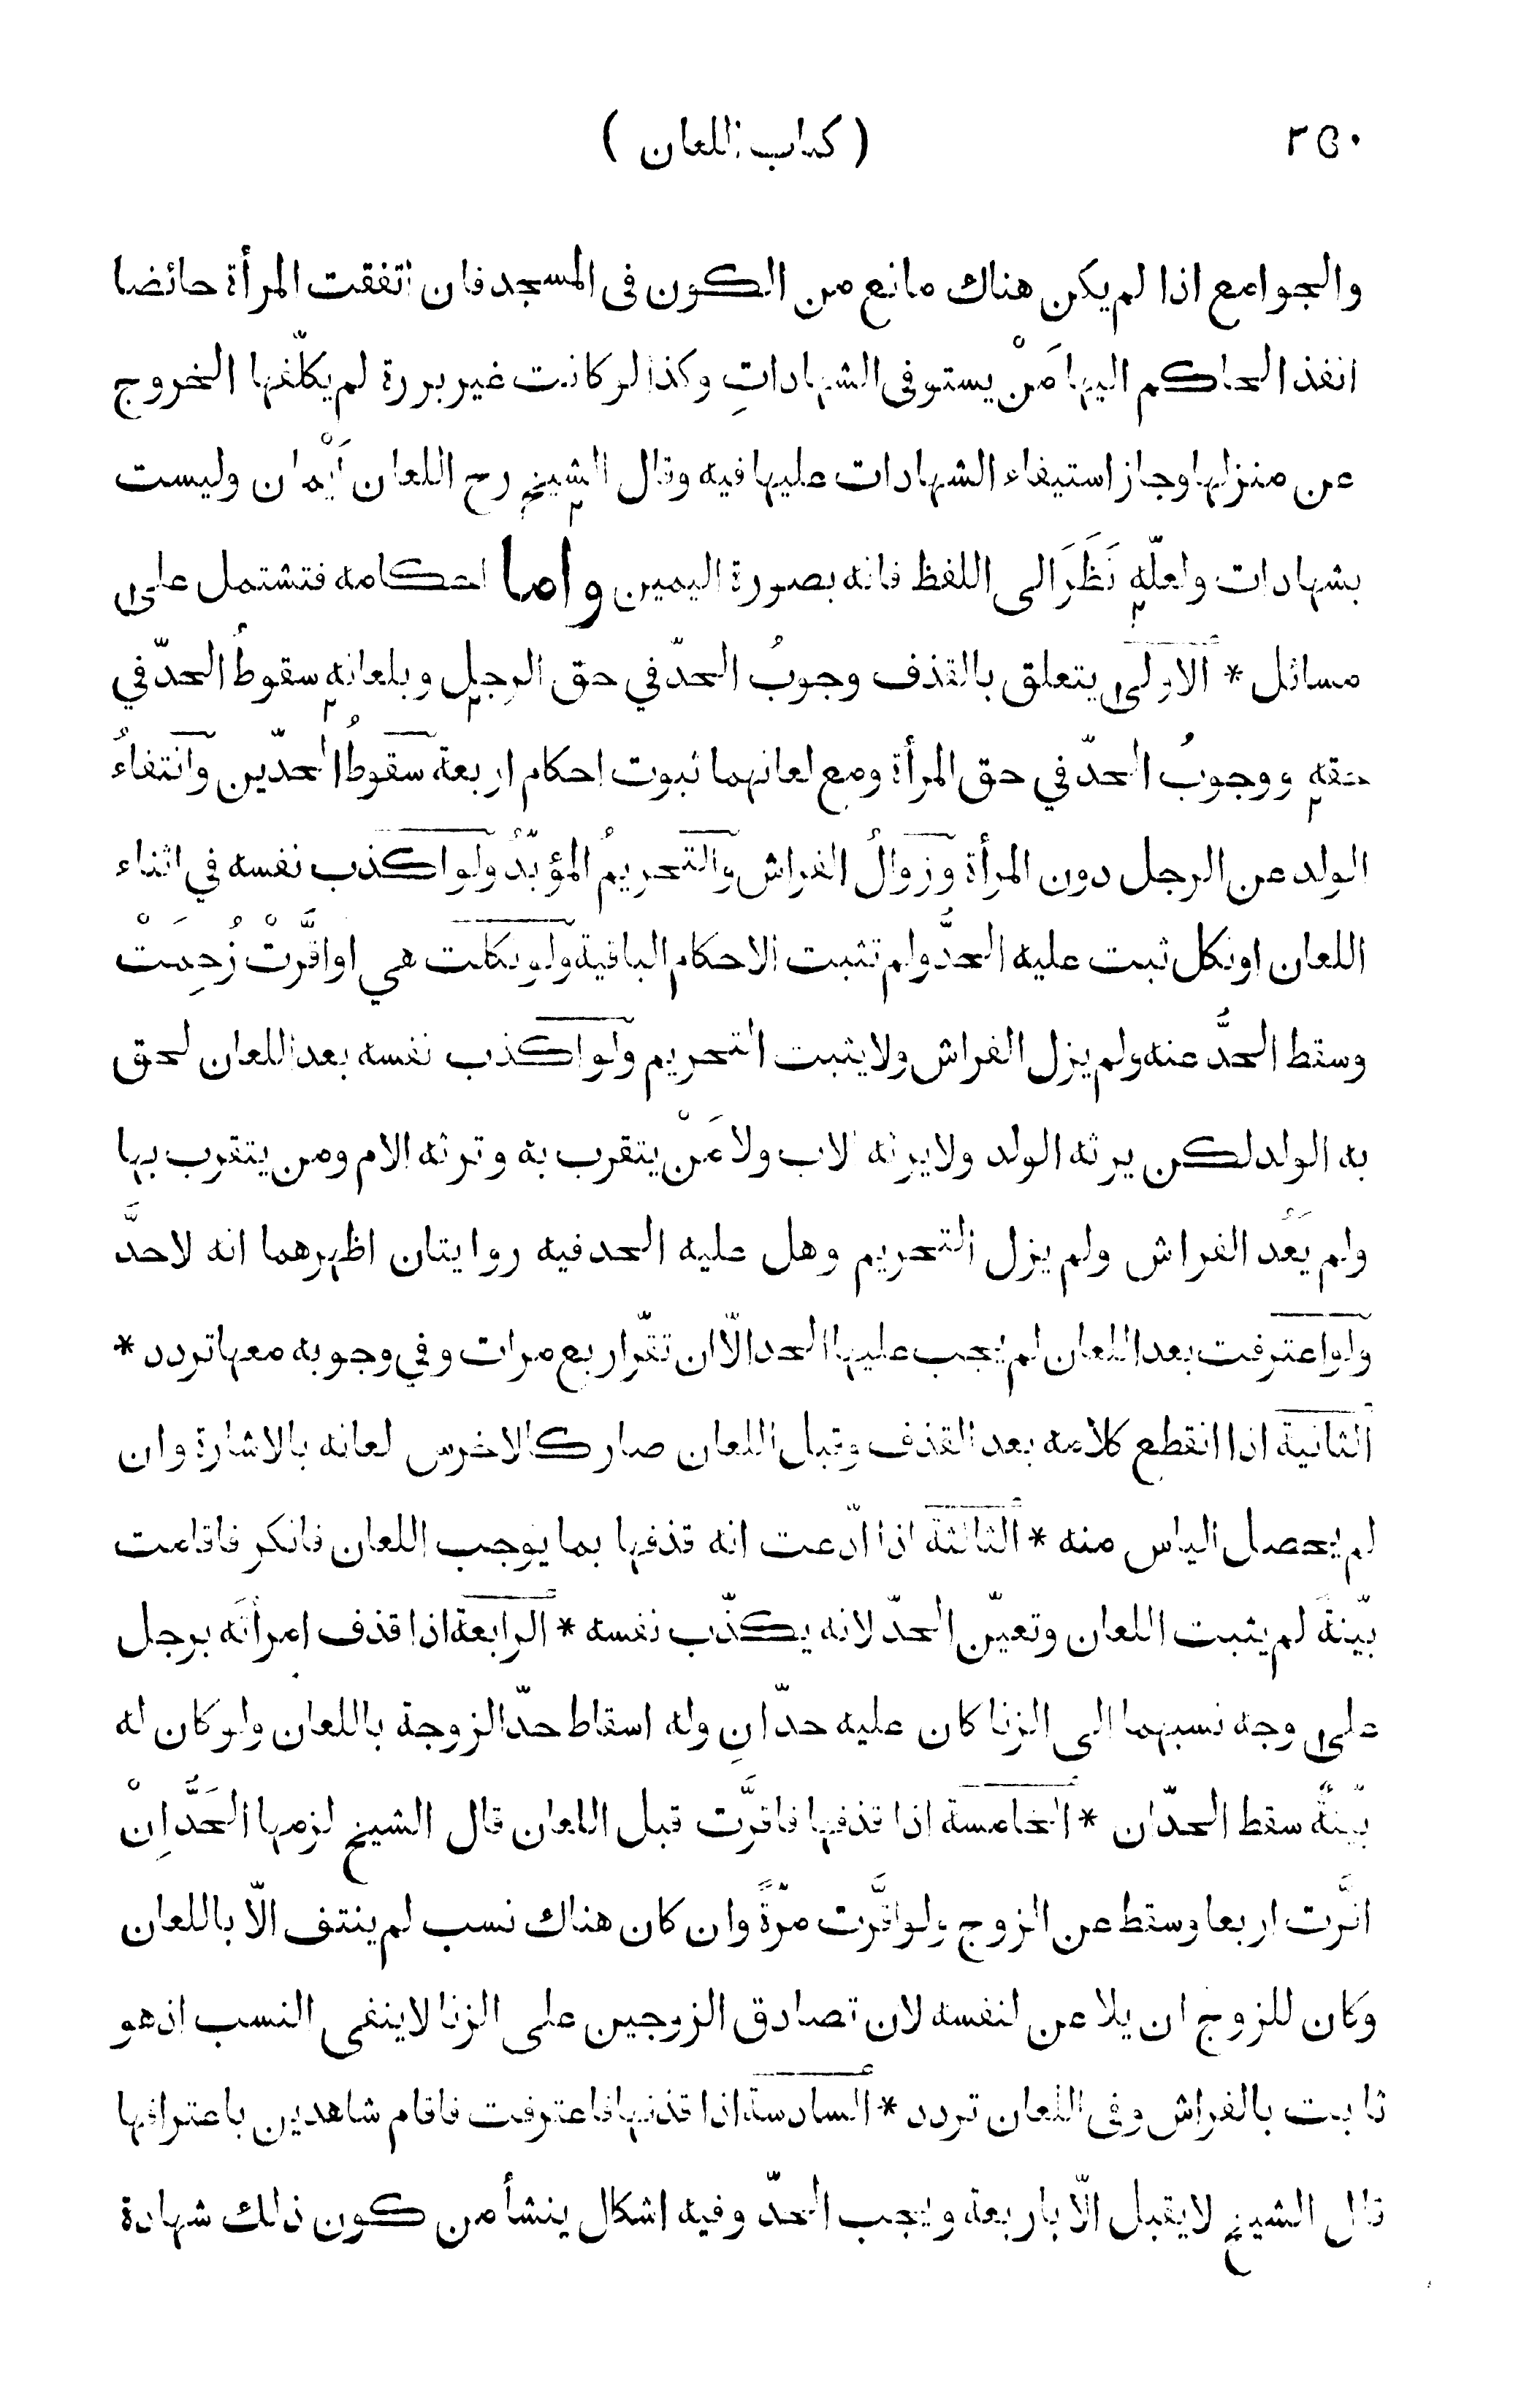 ٣٥٠ ( كتاب اللعان )
والجوامع اذا لم يكن هناك مانع من الكون فى المسجد فان اتفقت المرأة حائضا
انفذ الحاكم اليها مَنْ يستوفى الشهاداتِ وكذا لو كانت غير برزة لم يكلّفها الخروج
عن منزلها وجاز استيفاء الشهادات عليها فيه وقال الشيخ رح اللعان اَيْمان وليست
بشهادات ولعلّه نَظَرَ الى اللفظ فانه بصورة اليمين واما احكامه فتشتمل على
مسائل * الاولى يتعلق بالقذف وجوبُ الحدّ في حق الرجل وبلعانه سقوطُ الحدّ في
حقه ووجوبُ الحدّ في حق المرأة ومع لعانهما ثبوت احكام اربعة سقوطُ الحدّين وانتفاءُ
الولد عن الرجل دون المرأة وزوالُ الفراش والتحريمُ المؤبّدُ ولو اكذب نفسه في اثناء
اللعان او نكل ثبت عليه الحدُّ ولم تثبت الاحكام الباقية ولو نكلت هي او اقَرَّتْ رُجِمَتْ
وسقط الحدُّ عنه ولم يزل الفراش ولا يثبت التحريم ولو اكذب نفسه بعد اللعان لحق
به الولد لكن يرثه الولد ولا يرثه الاب ولا مَنْ يتقرب به وترثه الام ومن يتقرب بها
ولم يَعُد الفراش ولم يزل التحريم وهل عليه الحد فيه روايتان اظهرهما انه لا حدَّ
ولو اعترفت بعد اللعان لم يجب عليها الحد الّا ان تقرّ اربع مرات وفي وجوبه معها تردد *
الثانية اذا انقطع كلامه بعد القذف وقبل اللعان صار كالاخرس لعانه بالاشارة وان
لم يحصل الياس منه * الثالثة اذا ادّعت انه قذفها بما يوجب اللعان فانكر فاقامت
بيّنةً لم يثبت اللعان وتعيّن الحدّ لانه يكذّب نفسه * الرابعة اذا قذف امرأته برجل
على وجه نسبهما الى الزنا كان عليه حدّانِ وله اسقاط حدّ الزوجة باللعان ولو كان له
بيّنةٌ سقط الحدّان * الخامسة اذا قذفها فاقرَّت قبل اللعان قال الشيخ لزمها الحَدُّ اِنْ
اقرَّت اربعا وسقط عن الزوج ولو اقرَّت مرّةً وان كان هناك نسب لم ينتف الّا باللعان
وكان للزوج ان يلاعن لنفسه لان تصادق الزوجين على الزنا لا ينفى النسب اذ هو
ثابت بالفراش وفى اللعان تردد * السادسة اذا قذفها فاعترفت فاقام شاهدين باعترافها
قال الشيخ لا يقبل الّا باربعة ويجب الحدّ وفيه اشكال ينشأ من كون ذلك شهادة